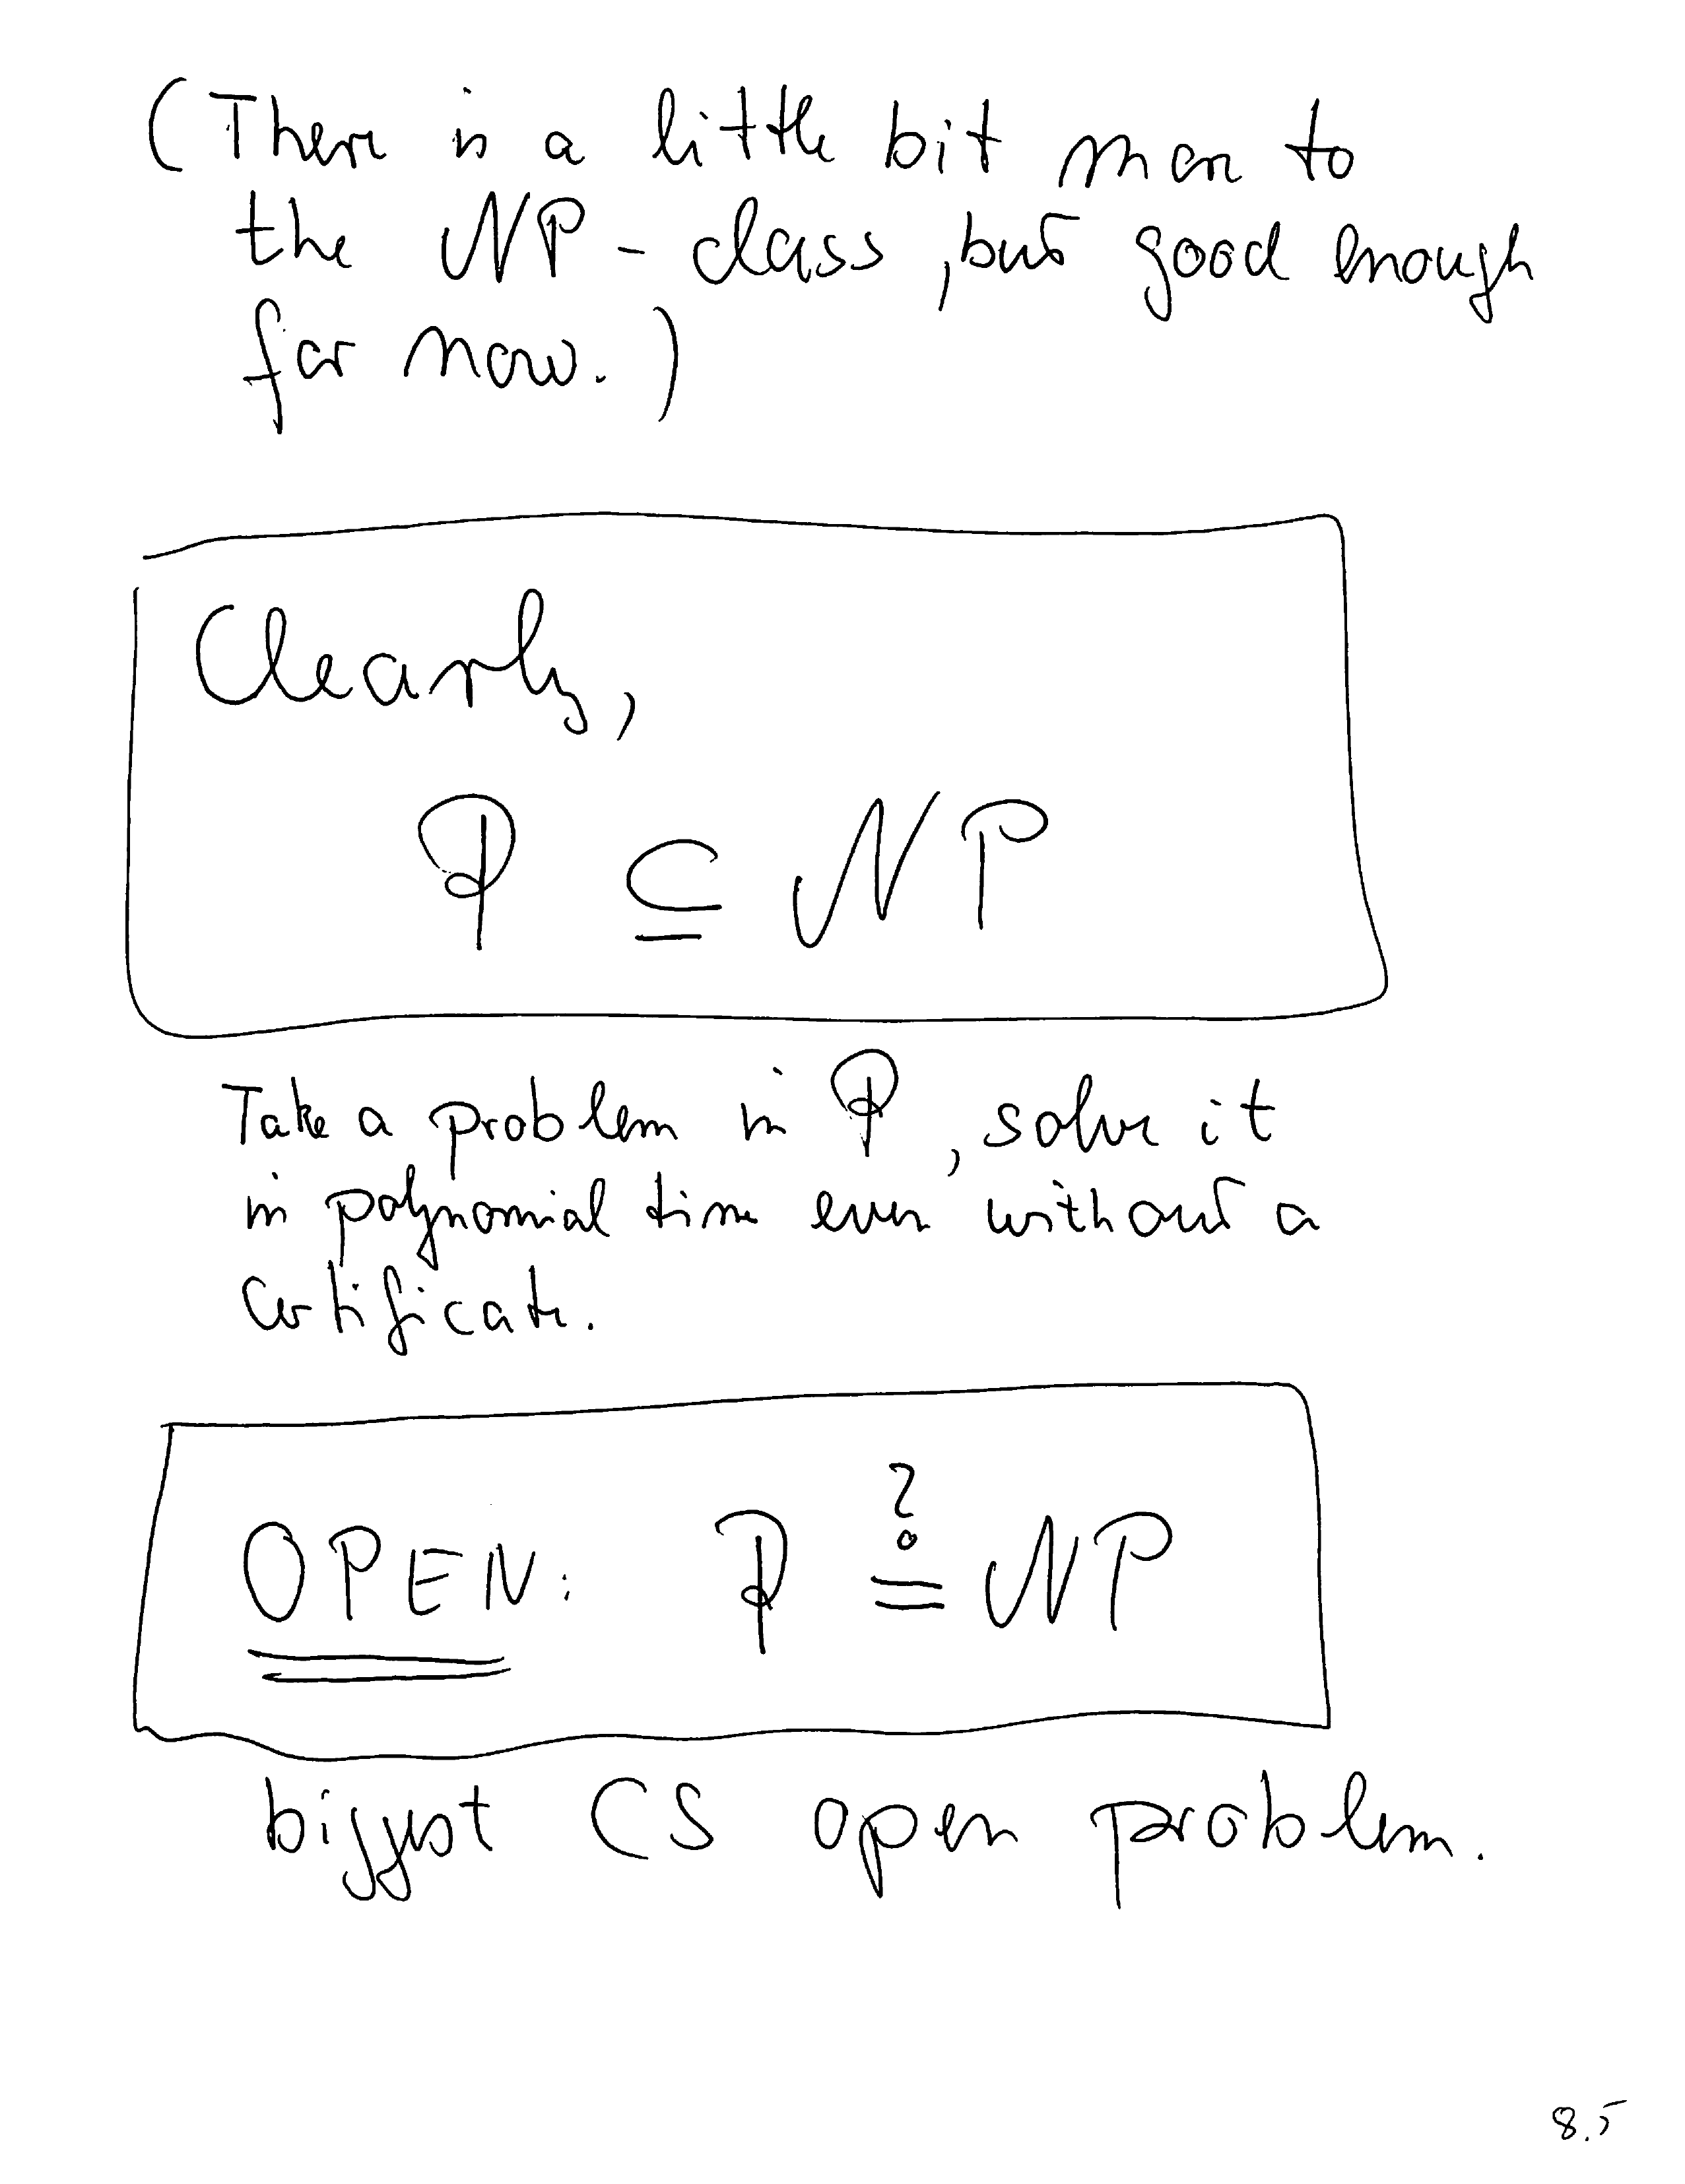 (There is a little bit more to
the NP-class, but good enough
for now.)
Clearly,
P ⊆ NP
Take a problem in P, solve it
in polynomial time even without a
certificate.
OPEN: P ≟ NP
biggest CS open problem.
8.5